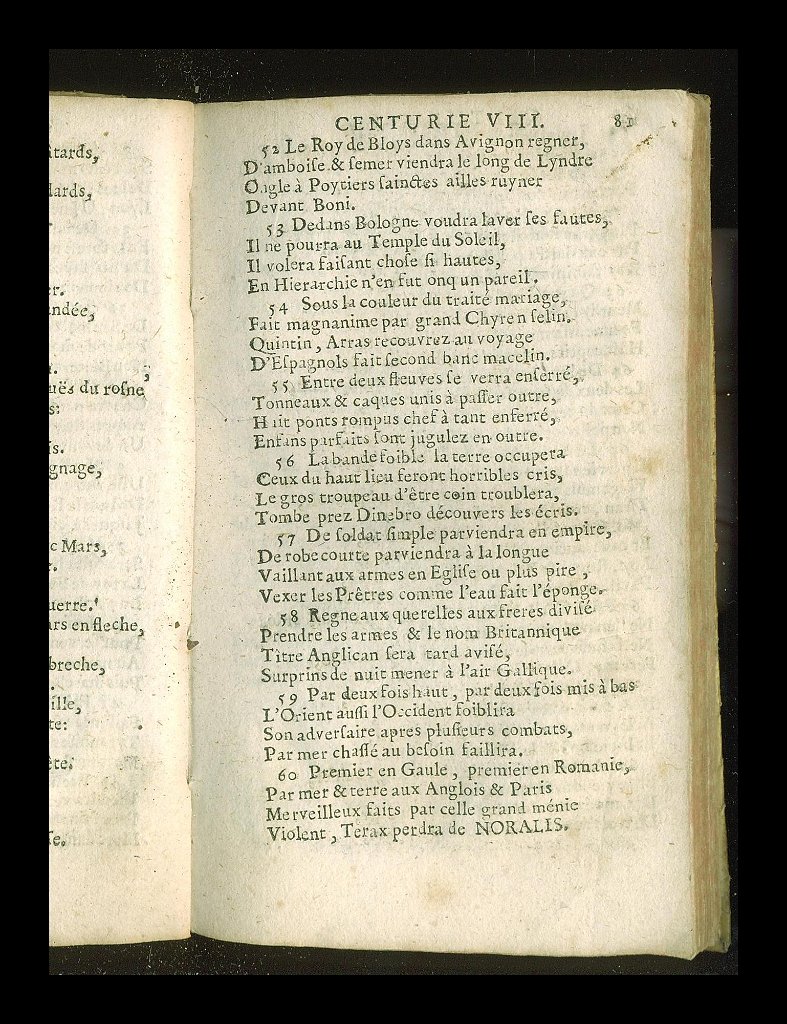 âtards,
dards,
er.
andée,
uës du rosne
s:
is.
gnage,
c Mars,
uerre.
ars en fleche,
breche,
ille,
te:
ête.
CENTURIE VIII. 81
52 Le Roy de Bloys dans Avignon regner,
D'amboiſe & ſemer viendra le long de Lyndre
Ongle à Poytiers ſainctes ailles ruyner
Devant Boni.
53 Dedans Bologne voudra laver ſes fautes,
Il ne pourra au Temple du Soleil,
Il volera faiſant choſe ſi hautes,
En Hierarchie n'en fut onq un pareil.
54 Sous la couleur du traité mariage,
Fait magnanime par grand Chyren ſelin.
Quintin, Arras recouvrez au voyage
D'Eſpagnols fait ſecond banc macelin.
55 Entre deux fleuves ſe verra enſerré,
Tonneaux & caques unis à paſſer outre,
Huit ponts rompus chef à tant enferré,
Enfans parfaits ſont jugulez en outre.
56 La bande foible la terre occupera
Ceux du haut lieu feront horribles cris,
Le gros troupeau d'être coin troublera,
Tombe prez Dinebro découvers les écris.
57 De ſoldat ſimple parviendra en empire,
De robe courte parviendra à la longue
Vaillant aux armes en Egliſe ou plus pire,
Vexer les Prêtres comme l'eau fait l'éponge.
58 Regne aux querelles aux freres diviſé
Prendre les armes & le nom Britannique
Titre Anglican ſera tard aviſé,
Surprins de nuit mener à l'air Gallique.
59 Par deux fois haut, par deux fois mis à bas
L'Orient auſſi l'Occident foiblira
Son adverſaire apres pluſieurs combats,
Par mer chaſſé au beſoin faillira.
60 Premier en Gaule, premier en Romanie,
Par mer & terre aux Anglois & Paris
Merveilleux faits par celle grand ménie
Violent, Terax perdra de NORALIS.